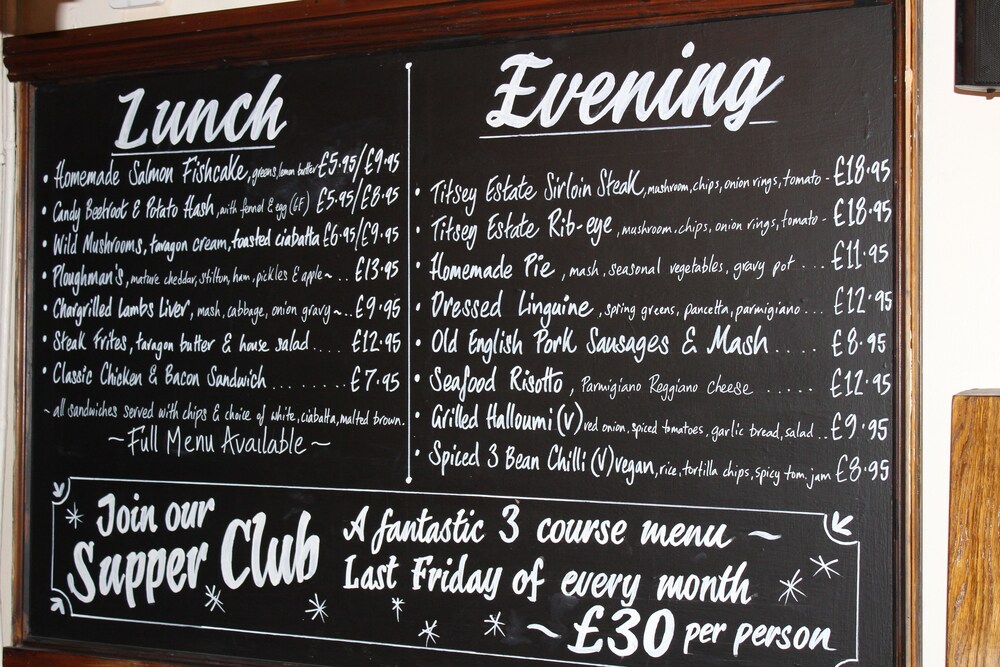 Lunch
• Homemade Salmon Fishcake, greens, lemon butter £5.95/£9.95
• Candy Beetroot & Potato Hash, with fennel & egg (GF) £5.95/£8.95
• Wild Mushrooms, taragon cream, toasted ciabatta £6.95/£9.95
• Ploughman's, mature cheddar, stilton, ham, pickles & apple ~ .. £13.95
• Chargrilled Lambs Liver, mash, cabbage, onion gravy ~... £9.95
• Steak Frites, taragon butter & house salad .... £12.95
• Classic Chicken & Bacon Sandwich ......... £7.95
~ all sandwiches served with chips & choice of white, ciabatta, malted brown.
~ Full Menu Available ~
Evening
• Titsey Estate Sirloin Steak, mushroom, chips, onion rings, tomato - £18.95
• Titsey Estate Rib-eye, mushroom, chips, onion rings, tomato - £18.95
• Homemade Pie, mash, seasonal vegetables, gravy pot .... £11.95
• Dressed Linguine, spring greens, pancetta, parmigiano ... £12.95
• Old English Pork Sausages & Mash ..... £8.95
• Seafood Risotto, Parmigiano Reggiano Cheese ...... £12.95
• Grilled Halloumi (V) red onion, spiced tomatoes, garlic bread, salad .. £9.95
• Spiced 3 Bean Chilli (V) vegan, rice, tortilla chips, spicy tom. jam £8.95
Join our
Supper Club
A fantastic 3 course menu ~
Last Friday of every month
~ £30 per person